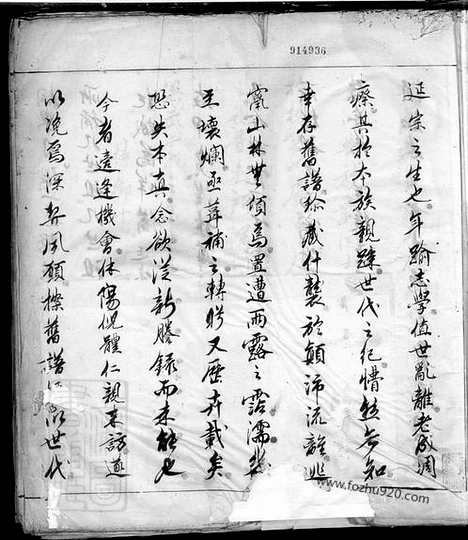 914936
延宗之生也年踰志學值世亂離老成凋
瘵其於本族親踈世代之紀懵然無知
幸存舊譜珍藏什襲於顛沛流離逃
竄山林無傾焉置遭雨露之霑濡幾
至壞爛亟葺補之轉眄又歷卉載矣
恐失本真念欲從新謄錄而未能也
今者遠逢機會休傷倪體仁親來訪道
以浼焉深契夙願標舊譜 以世代
www.fozhu920.com